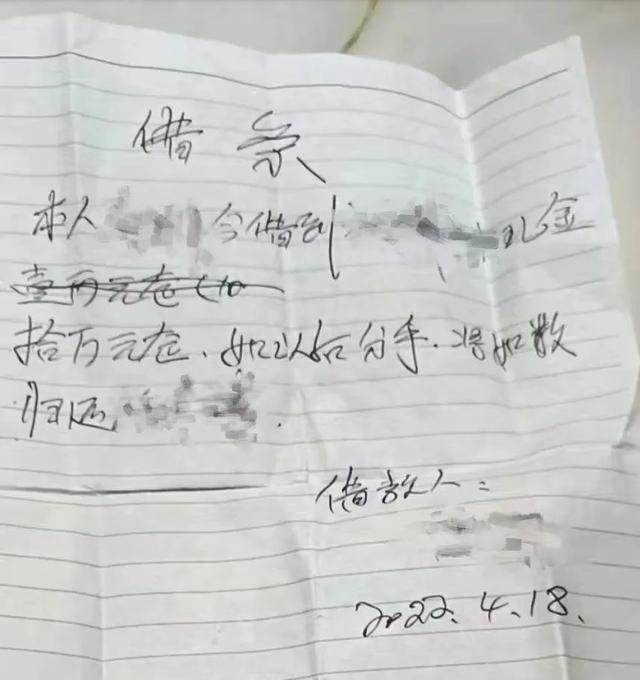 借条
本人 今借到 礼金
壹万元整（10
拾万元整、如以后分手、将如数
归还 .
借款人：
2022.4.18.